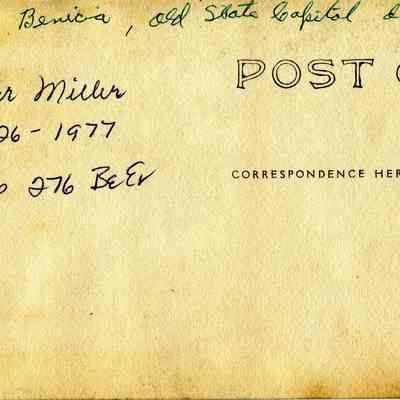 Benicia, Old State Capitol
POST
Miller
26-1977
276 BeEv
CORRESPONDENCE HER